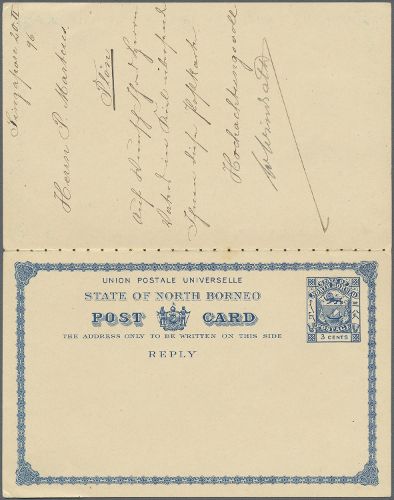 Singapore 20.II
96
Herrn P. Martens
Plön
Auf Wunsch Ihres Herrn
in Kiel
Ihnen diese Postkarte
Hochachtungsvoll
UNION POSTALE UNIVERSELLE
STATE OF NORTH BORNEO
POST CARD
THE ADDRESS ONLY TO BE WRITTEN ON THIS SIDE
REPLY
STATE OF
NORTH BORNEO
POSTAGE
3 CENTS